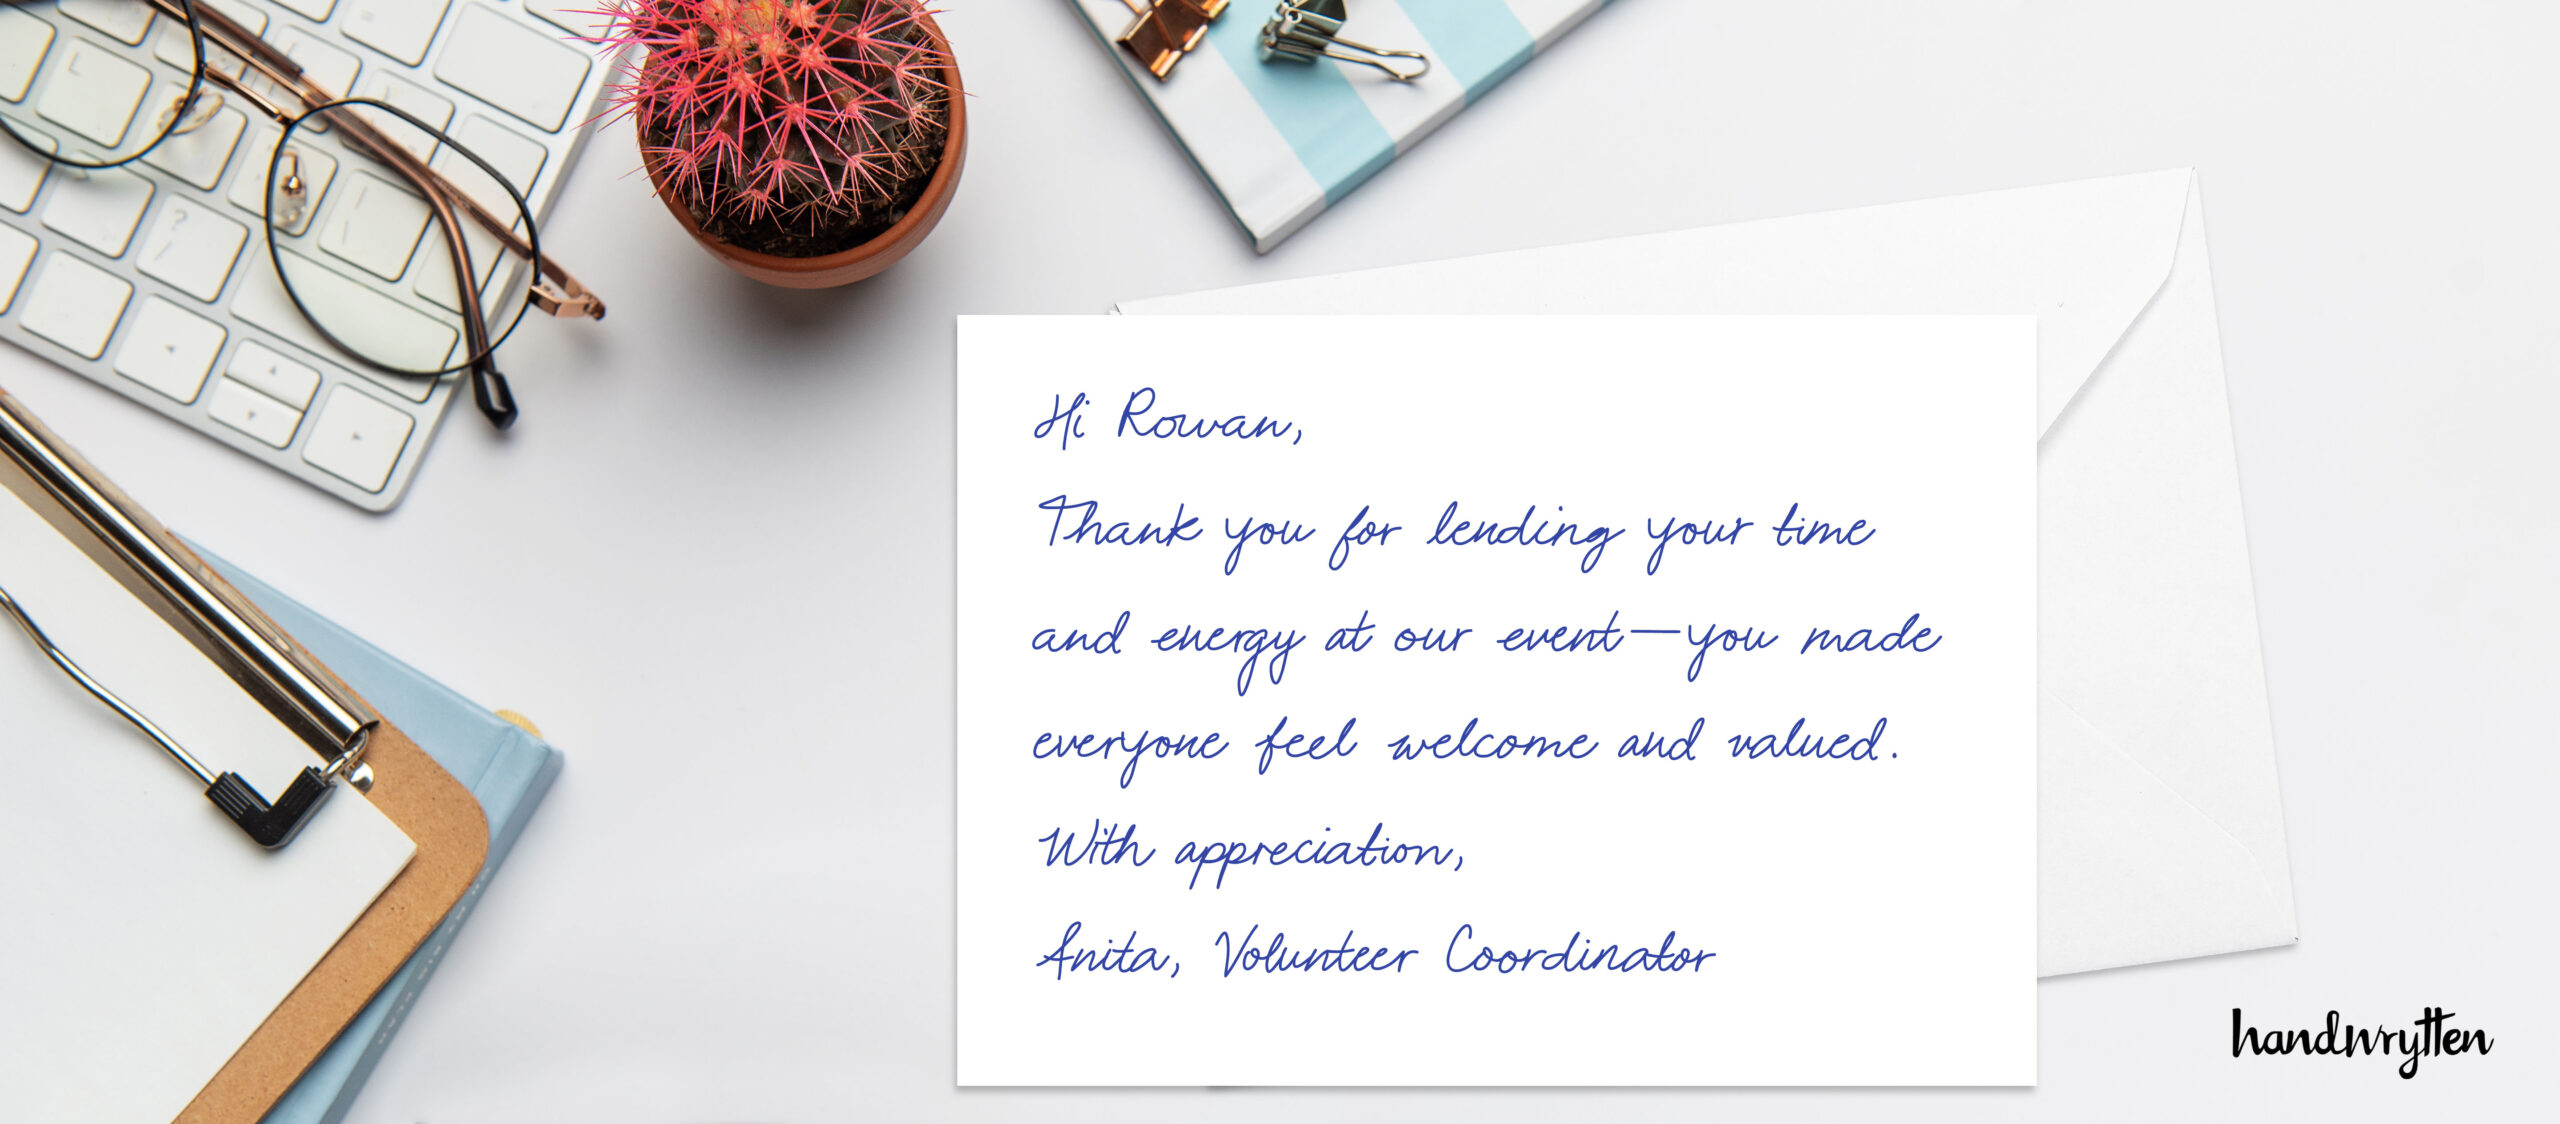 Hi Rowan,
Thank you for lending your time
and energy at our event—you made
everyone feel welcome and valued.
With appreciation,
Anita, Volunteer Coordinator
handwrytten
L
?
/